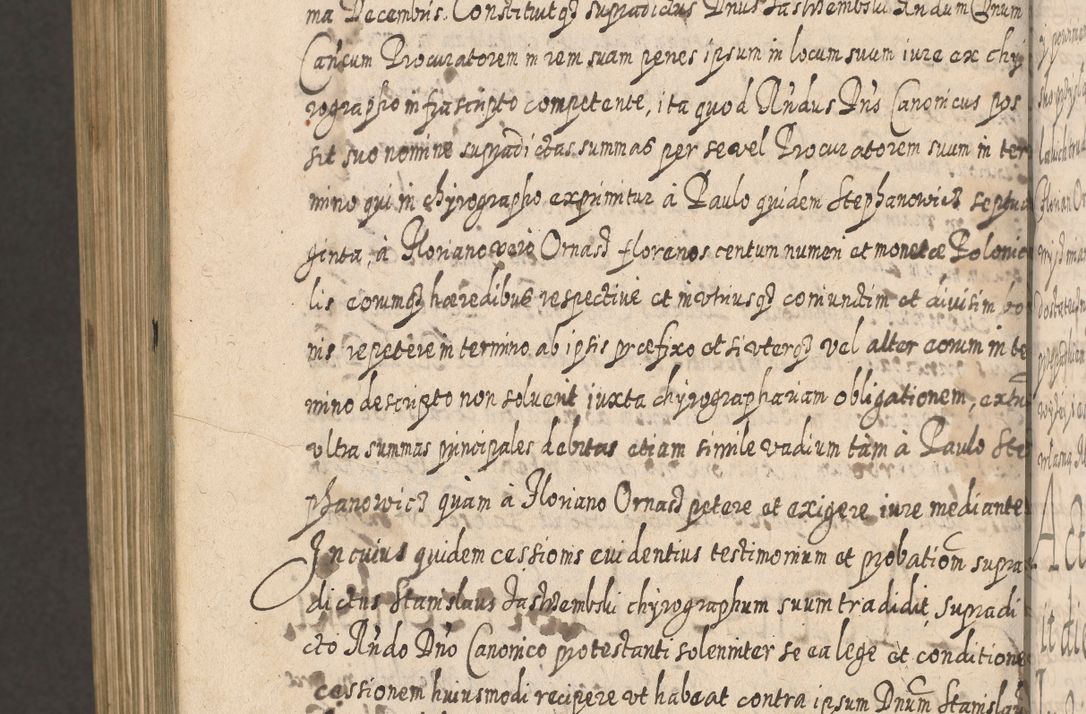 ma Decembris. Constituitqȝ supradictus Dnus Jastrzembski Rndum Dnum
Cancum Procuratorem in rem suam penes ipsum in locum suum iure ex chyr
rographo infrascripto competente, ita quod Rndus Dns Canonicus pos
sit suo nomine supradictas summas per se vel Procuratorem suum in ter
mino qui in chyrographo exprimitur à Paulo quidem Stephanowicȝ septua
ginta, à Floriano vero Ornasȝ florenos centum numeri et monetæ Polonica
lis eorumqȝ hæredibus respective et in utriusqȝ coniunctim et divisim bo
nis repetere in termino ab ipsis præfixo et si uterqȝ vel alter eorum in te
mino descripto non solverit iuxta chyrographariam obligationem, extu
ultra summas principales debitas etiam simile vadium tàm à Paulo Ste
phanowicȝ quàm à Floriano Ornasȝ petere et exigere iure mediante
In cuius quidem cessionis evidentius testimonium et probationem supra
dictus Stanislaus Jastrzembski chyrographum suum tradidit, supradi
cto Rndo Dno Canonico protestanti solenniter se ea lege et conditione
cessionem huiusmodi recipere ut habeat contra ipsum Dnum Stanislau